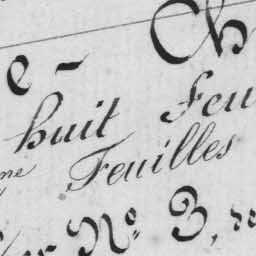 e - Ch
huit Feu
me Feuilles
Nº 3,